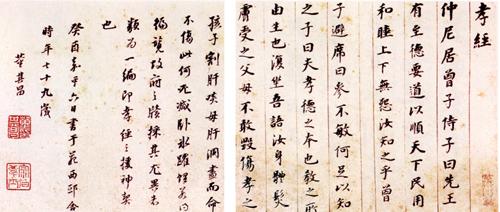 孝經
仲尼居曾子侍子曰先王
有至德要道以順天下民用
和睦上下無怨汝知之乎曾
子避席曰參不敏何足以知
之子曰夫孝德之本也教之所
由生也復坐吾語汝身體髮
膚受之父母不敢毀傷孝之
孩子割肝母肝而命
不傷此何卧冰躍
覽故府之牘採其尤異者
類為一編即孝經之神契
也
癸酉嘉平六日書于苑西邸舍
時年七十九歲
董其昌